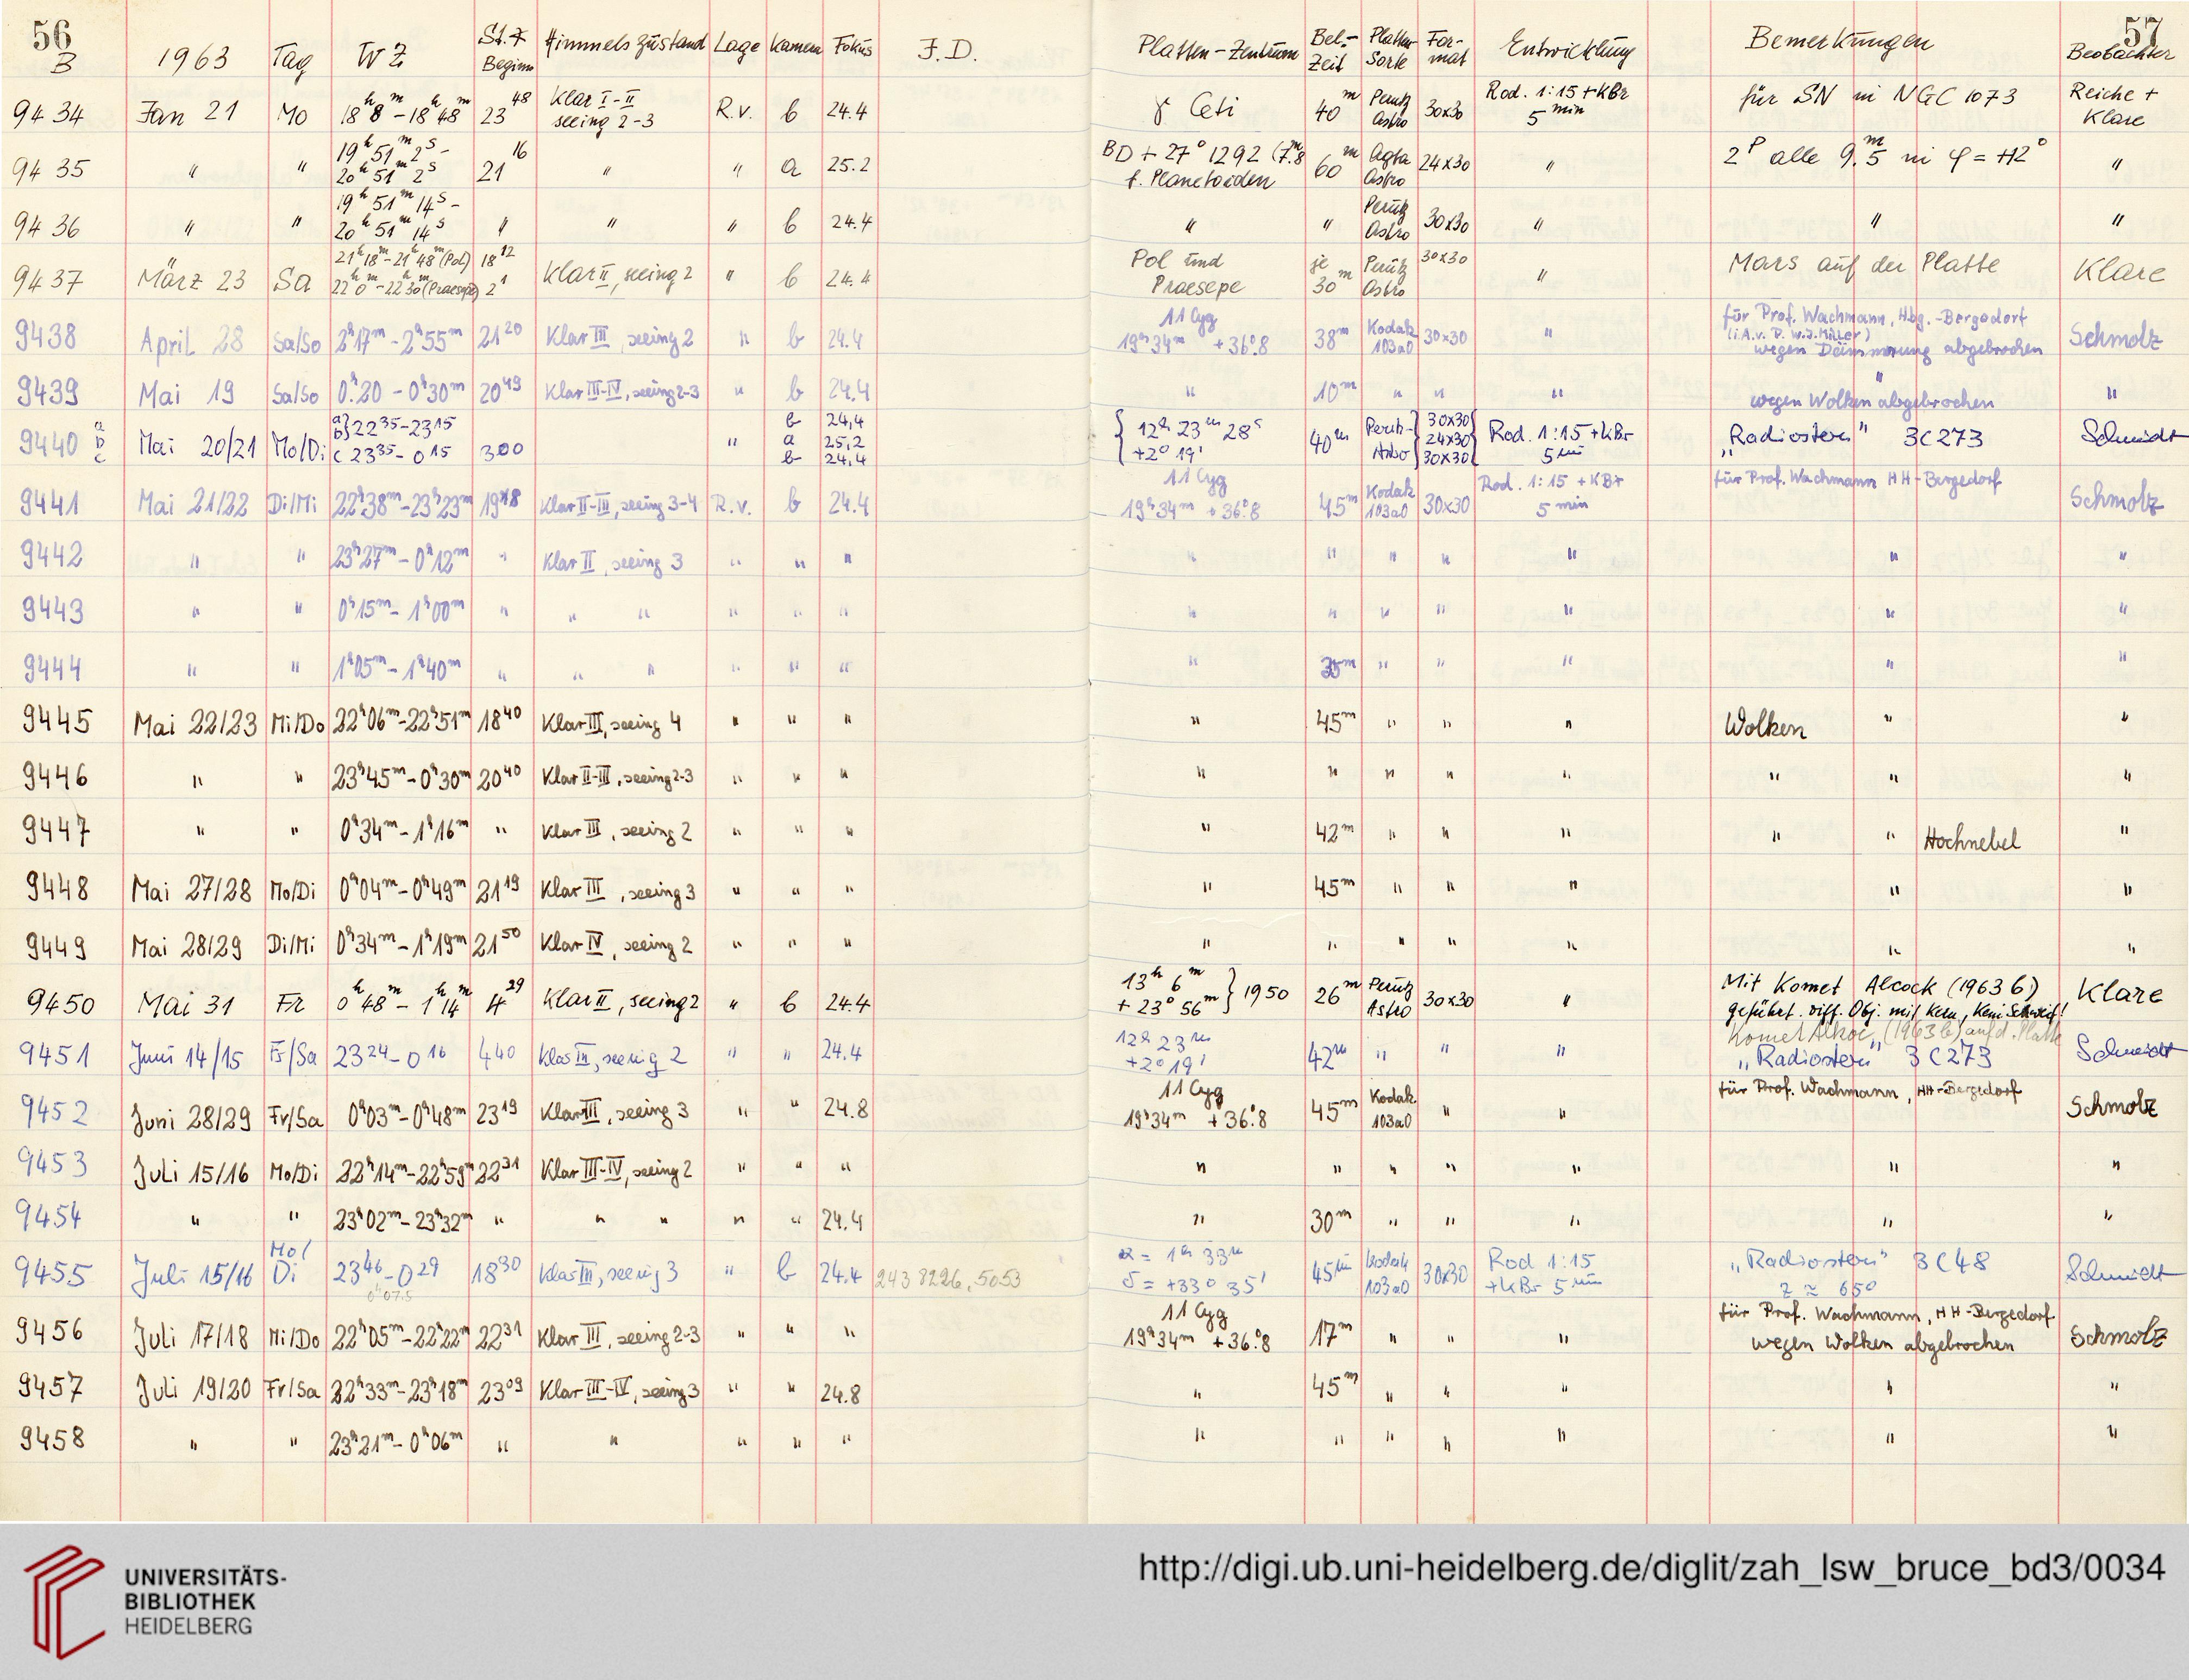 56 57
B 1963 Tag WZ St.✶ Beginn Himmelszustand Lage Kamera Fokus J.D. Platten-Zentrum Bel.-Zeit Platten Sorte For-mat Entwicklung Bemerkungen Beobachter
9434 Jan 21 Mo 18ʰ8ᵐ-18ʰ48ᵐ 23⁴⁸ Klar I-II seeing 2-3 R.v. b 24.4 γ Ceti 40ᵐ Perutz Astro 30x30 Rod. 1:15+KBr 5 min für SN in NGC 1073 Reiche + Klare
9435 " " 19ʰ51ᵐ2ˢ- 20ʰ51ᵐ2ˢ 21¹⁶ " " a 25.2 BD+27°1292 (7.ᵐ8 f. Planetoiden 60ᵐ Agfa Astro 24x30 " 2ᴾ alle 9.ᵐ5 in φ = +12° "
9436 " " 19ʰ51ᵐ14ˢ- 20ʰ51ᵐ14ˢ " " " b 24.4 " " Perutz Astro 30x30 " " "
9437 März 23 Sa 21ʰ18ᵐ-21ʰ48ᵐ(Pol) 22ʰ0ᵐ-22ʰ30ᵐ(Praesepe) 18¹² 2¹ Klar II, seeing 2 " b 24.4 Pol und Praesepe je 30ᵐ Perutz Astro 30x30 " Mars auf der Platte Klare
9438 April 28 Sa/So 2ʰ17ᵐ-2ʰ55ᵐ 21²⁰ Klar III, seeing 2 " b 24.4 11 Cyg 19ʰ34ᵐ +36°.8 38ᵐ Kodak 103a0 30x30 " für Prof. Wachmann, Hbg.-Bergedorf (i.A.v. P. W.J. Miller) wegen Dämmerung abgebrochen Schmolz
9439 Mai 19 Sa/So 0ʰ20-0ʰ30ᵐ 20⁴⁹ Klar III-IV, seeing 2-3 " b 24.4 " 10ᵐ " " " " wegen Wolken abgebrochen "
9440 a b c Mai 20/21 Mo/Di a b} 22³⁵-23¹⁵ c 23³⁵-0¹⁵ 300 " b 24,4 a 25,2 b 24,4 { 12ʰ 23ᵐ 28ˢ +2° 19' 40ᵐ Perutz-Astro } 30x30 24x30 30x30 { Rod. 1:15+KBr 5 min „Radiostern" 3C273 Schmidt
9441 Mai 21/22 Di/Mi 22ʰ38ᵐ-23ʰ23ᵐ 19⁴⁸ Klar II-III, seeing 3-4 R.v. b 24.4 11 Cyg 19ʰ34ᵐ +36°.8 45ᵐ Kodak 103a0 30x30 Rod. 1:15 +KBr 5 min für Prof. Wachmann HH-Bergedorf Schmolz
9442 " " 23ʰ27ᵐ-0ʰ12ᵐ " Klar II, seeing 3 " " " " " " " " " "
9443 " " 0ʰ15ᵐ-1ʰ00ᵐ " " " " " " " " " " " " "
9444 " " 1ʰ05ᵐ-1ʰ40ᵐ " " " " " " " 35ᵐ " " " " "
9445 Mai 22/23 Mi/Do 22ʰ06ᵐ-22ʰ51ᵐ 18⁴⁰ Klar III, seeing 4 " " " " 45ᵐ " " " Wolken " "
9446 " " 23ʰ45ᵐ-0ʰ30ᵐ 20⁴⁰ Klar II-III, seeing 2-3 " " " " " " " " " " "
9447 " " 0ʰ34ᵐ-1ʰ16ᵐ " Klar III, seeing 2 " " " " 42ᵐ " " " " " Hochnebel "
9448 Mai 27/28 Mo/Di 0ʰ04ᵐ-0ʰ49ᵐ 21¹⁹ Klar III, seeing 3 " " " " 45ᵐ " " " " "
9449 Mai 28/29 Di/Mi 0ʰ34ᵐ-1ʰ19ᵐ 21⁵⁰ Klar IV, seeing 2 " " " " " " " " " "
9450 Mai 31 Fr 0ʰ48ᵐ-1ʰ14ᵐ 4²⁹ Klar II, seeing 2 " b 24.4 13ʰ 6ᵐ +23° 56ᵐ } 1950 26ᵐ Perutz Astro 30x30 " Mit Komet Alcock (1963 b) geführt. diff. Obj. mit Kern, kein Schweif! Klare
Komet Alcock (1963 b) auf d. Platte
9451 Juni 14/15 Fr/Sa 23²⁴-0¹⁶ 440 Klar III, seeing 2 " " 24.4 12ʰ 23ᵐ +2° 19' 42ᵐ " " " „Radiostern" 3C273 Schmidt
9452 Juni 28/29 Fr/Sa 0ʰ03ᵐ-0ʰ48ᵐ 23¹⁹ Klar III, seeing 3 " " 24.8 11 Cyg 19ʰ34ᵐ +36°.8 45ᵐ Kodak 103a0 " " für Prof. Wachmann, HH-Bergedorf Schmolz
9453 Juli 15/16 Mo/Di 22ʰ14ᵐ-22ʰ59ᵐ 22³¹ Klar III-IV, seeing 2 " " " " " " " " " "
9454 " " 23ʰ02ᵐ-23ʰ32ᵐ " " " " " 24.4 " 30ᵐ " " " " "
9455 Juli 15/16 Mo/Di 23⁴⁶-0²⁹ 0ʰ07.5 18³⁰ Klar III, seeing 3 " b 24.4 243 8226.5053 α = 1ʰ 33ᵐ δ = +33° 35' 45ᵐ Kodak 103a0 30x30 Rod 1:15 +KBr 5 min „Radiostern" 3C48 z ≈ 65° Schmidt
9456 Juli 17/18 Mi/Do 22ʰ05ᵐ-22ʰ22ᵐ 22³¹ Klar III, seeing 2-3 " " " 11 Cyg 19ʰ34ᵐ +36°.8 17ᵐ " " " für Prof. Wachmann, HH-Bergedorf wegen Wolken abgebrochen Schmolz
9457 Juli 19/20 Fr/Sa 22ʰ33ᵐ-23ʰ18ᵐ 23⁰⁹ Klar III-IV, seeing 3 " " 24.8 " 45ᵐ " " " " "
9458 " " 23ʰ21ᵐ-0ʰ06ᵐ " " " " " " " " " " " "
UNIVERSITÄTS-
BIBLIOTHEK
HEIDELBERG
http://digi.ub.uni-heidelberg.de/diglit/zah_lsw_bruce_bd3/0034